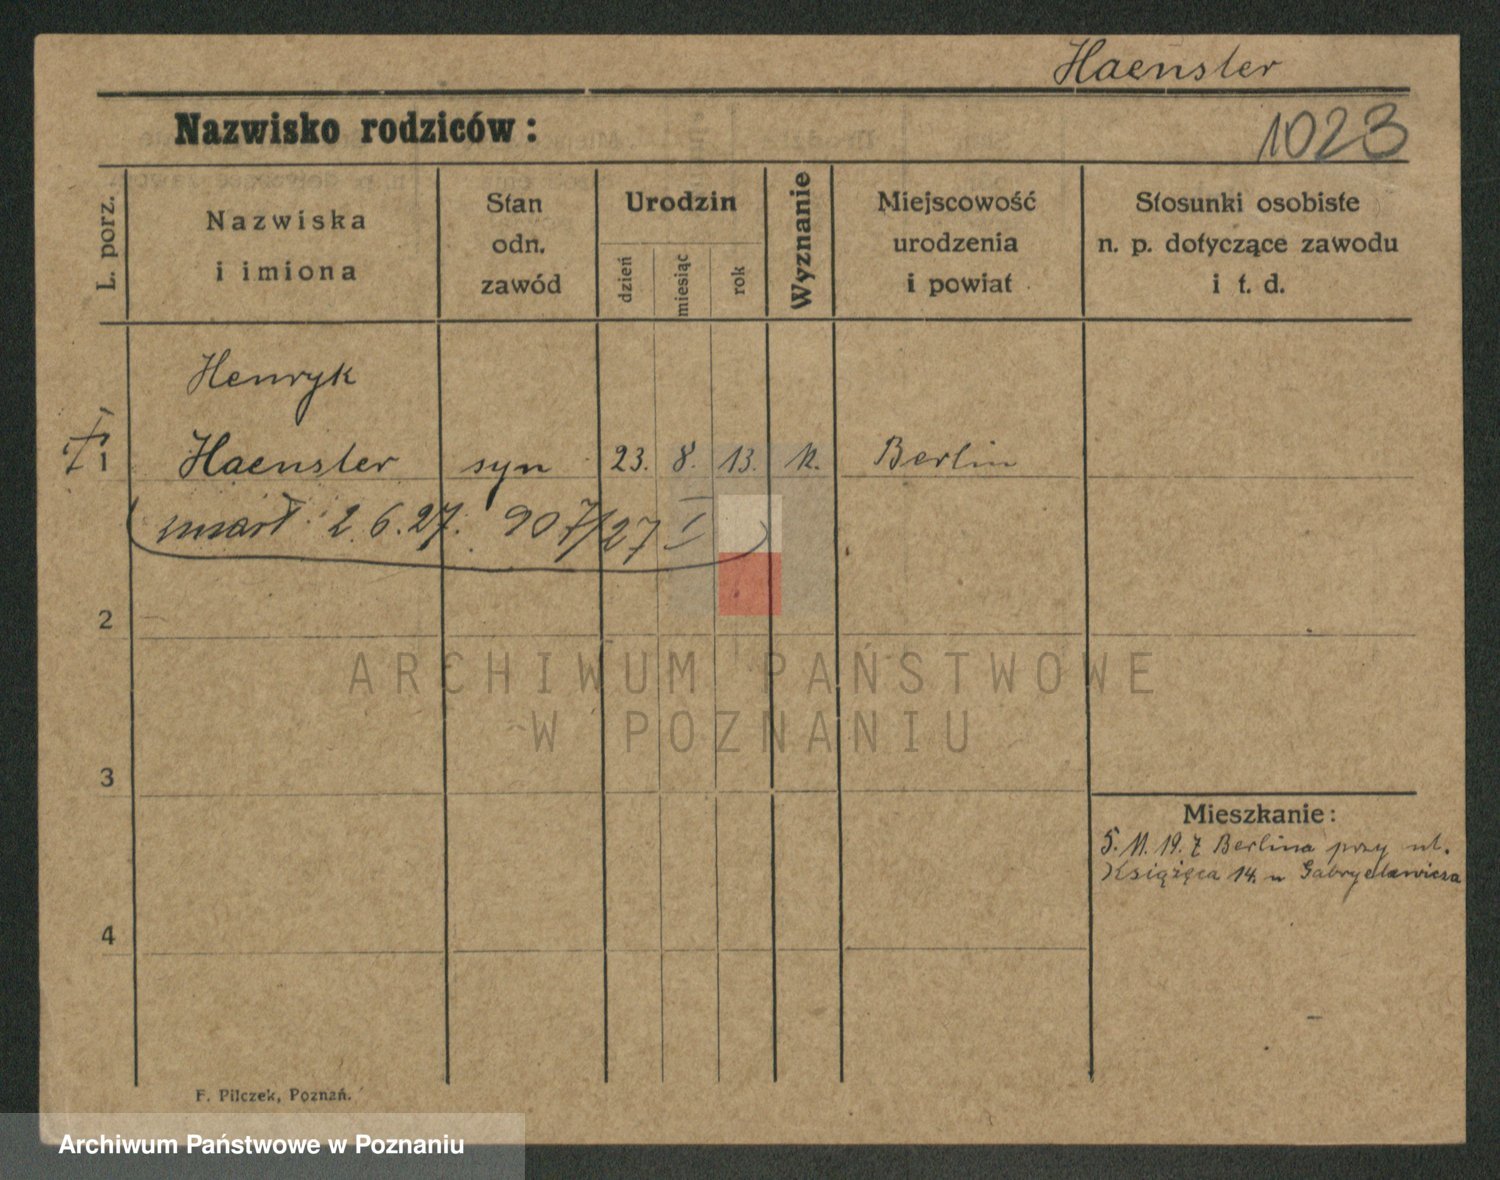 Haensler
Nazwisko rodziców:
1023
L. porz.
Nazwiska
i imiona
Stan
odn.
zawód
Urodzin
dzień
miesiąc
rok
Wyznanie
Miejscowość
urodzenia
i powiat
Stosunki osobiste
n. p. dotyczące zawodu
i t. d.
Henryk
1 Haensler syn 23. 8. 13. k. Berlin
zmarł 2.6.27. 907/27 I
2
ARCHIWUM PAŃSTWOWE
W POZNANIU
3
Mieszkanie:
5. 11. 19. z Berlina przy ul.
Książęca 14. u Gabryelewicza
4
F. Pilczek, Poznań.
Archiwum Państwowe w Poznaniu